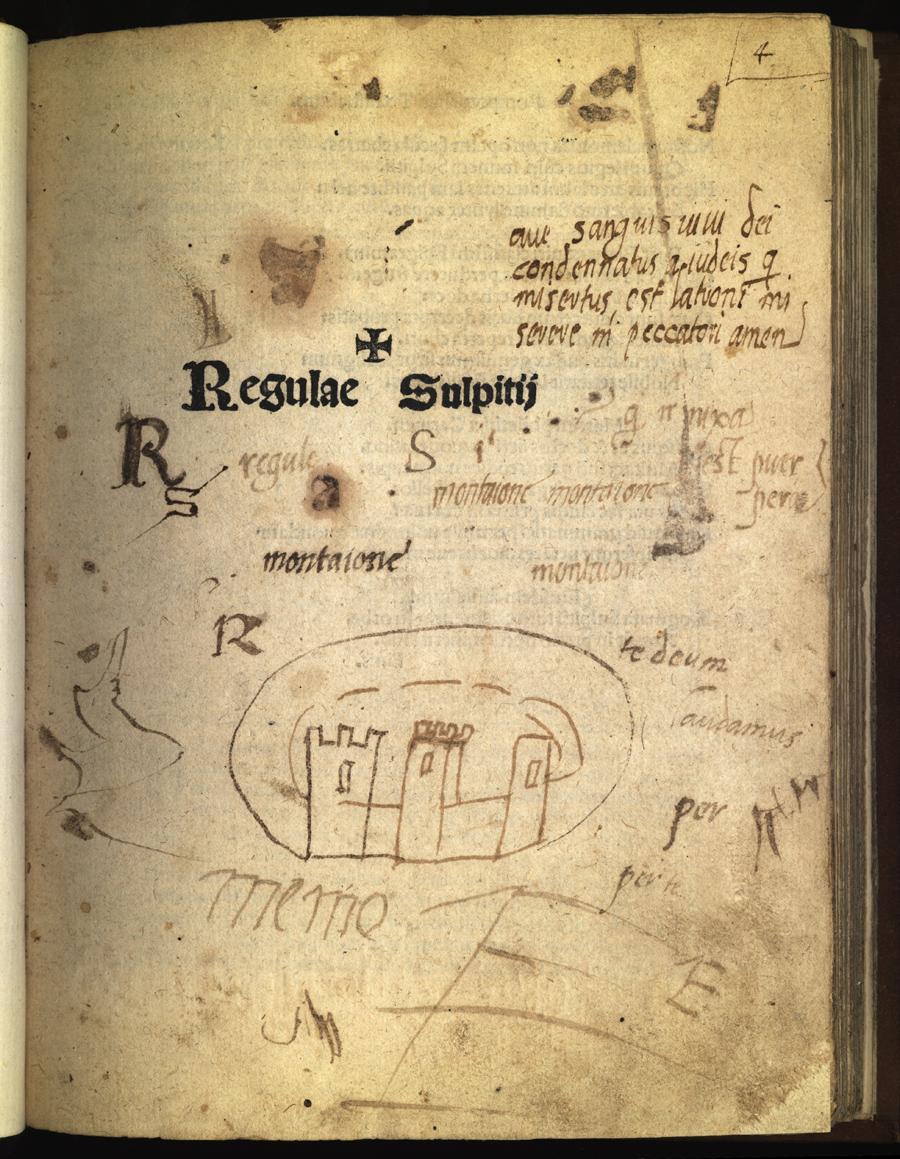 4
aue sanguis uiui dei
condennatus a iudeis q
misertus est latroni mi
serere m peccatori amen
✠
Regulae Sulpitij
R
S
regule
S
montaione montaione
est puer
montaione
montaione
R
te deum
laudamus
per
per te
memo
E